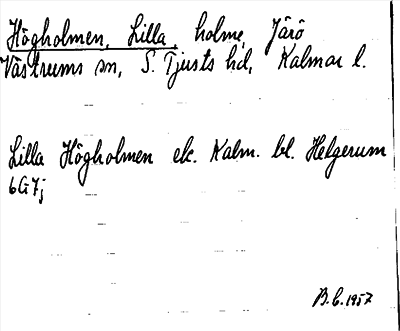 Högholmen, Lilla, holme, Järö
Västrums sn, S. Tjusts hd, Kalmar l.
Lilla Högholmen ek. Kalm. bl. Helgerum
6G7j
B.C. 1957